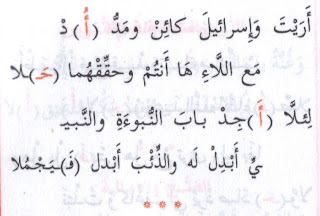 أَرَيْتَ وَإِسرائيلَ كائِنْ ومَدُّ (أُ) دْ
مَع اللَّاءِ هَا أَنتُمْ وحقِّقْهُما (حَـ)ـلا
لِئلَّا (أَ)جِدْ بابَ النُّبوءَةِ والنَّبيـ
ـيِّ أَبْدِلْ لَه والذِّئْبَ أبْدل (فَـ)ـيَجْمُلا
* * *